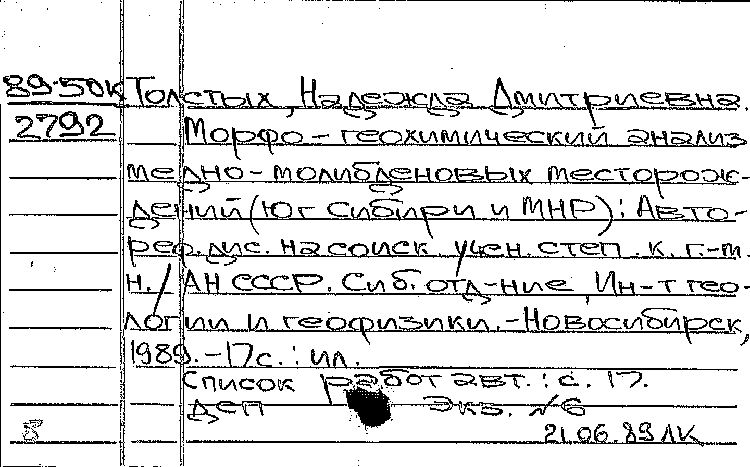 89-50К Толстых, Надежда Дмитриевна.
2792 Морфо-геохимический анализ
медно-молибденовых месторож-
дений (Юг Сибири и МНР): Авто-
реф. дис. на соиск учен. степ. к. г.-м.
н. / АН СССР. Сиб. отд-ние, Ин-т гео-
логии и геофизики.-Новосибирск,
1989.-17с.: ил.
Список работ авт.: с. 17.
ДСП Экз. №6
21.06.89 ЛК